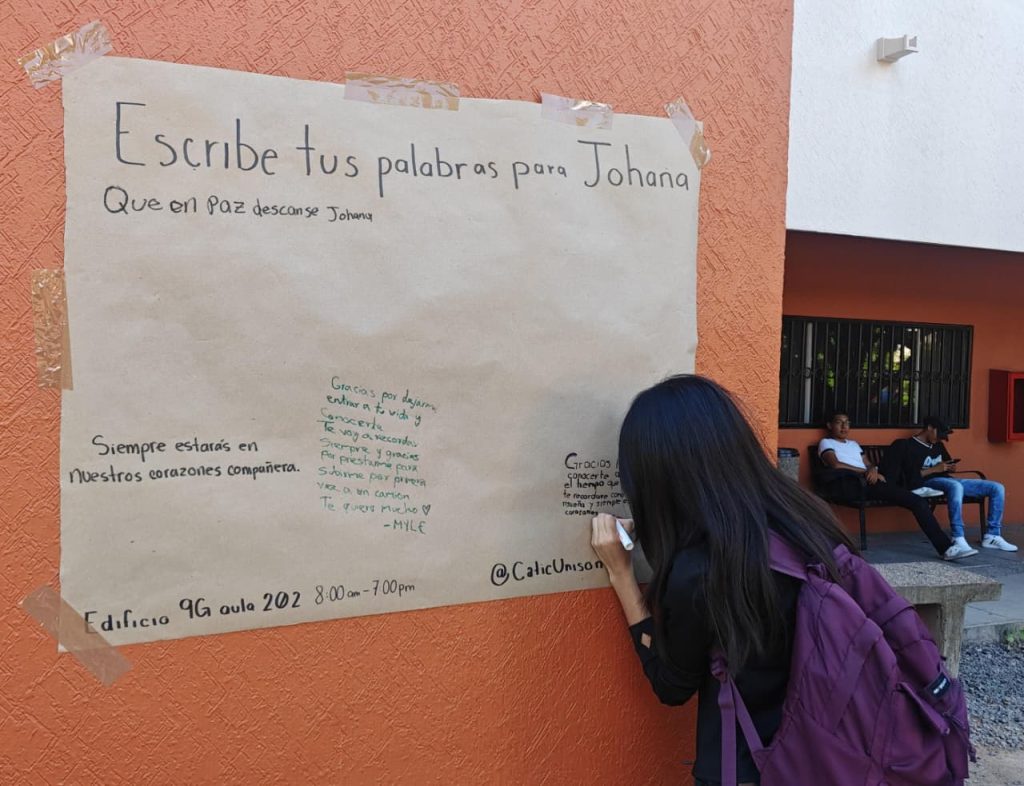 Escribe tus palabras para Johana
Que en Paz descanse Johana
Gracias por dejarme
entrar a tu vida y
Conocerte
Te voy a recordar
Siempre y gracias
Por prestarme para
subirme por primera
vez a un camion
Te quiero mucho ♡
-MYLE
Siempre estarás en
nuestros corazones compañera.
Gracias
conocerte
el tiempo que
te recordare con
y siempre
corazones
@CaticUnison
Edificio 9G aula 202 8:00 am - 7:00 pm